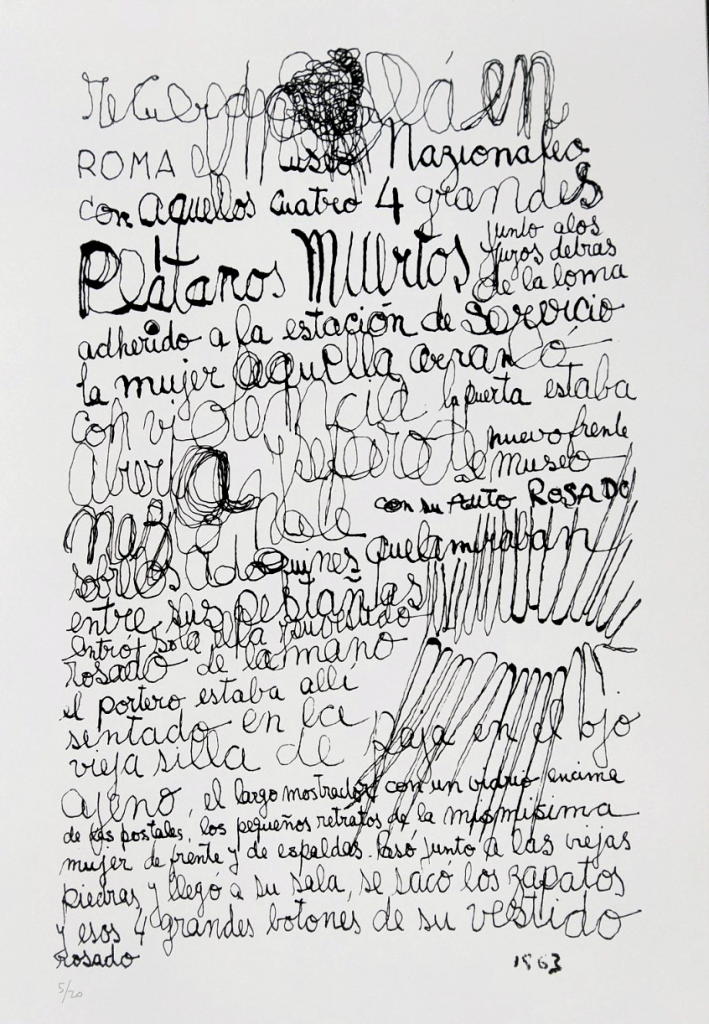 Recuerdo allá en
ROMA el Museo Nazionaleo
con aquellos cuatro 4 grandes
Plátanos Muertos junto a los
yuyos detras
de la loma
adherido a la estación de servicio
la mujer aquella arrancó
con violencia la puerta estaba
abierta nuevo frente
al museo
con su Auto ROSADO
sobre los adoquines que la miraban
entre sus pestañas
entró sola ella su vestido
rosado de la mano
el portero estaba allí
sentado en la
vieja silla de paja en el ojo
ajeno, el largo mostrador con un vidrio encima
de las postales, los pequeños retratos de la mismisima
mujer de frente y de espaldas. Pasó junto a las viejas
piedras y llegó a su sala, se sacó los zapatos
y esos 4 grandes botones de su vestido
rosado 1963
5/20